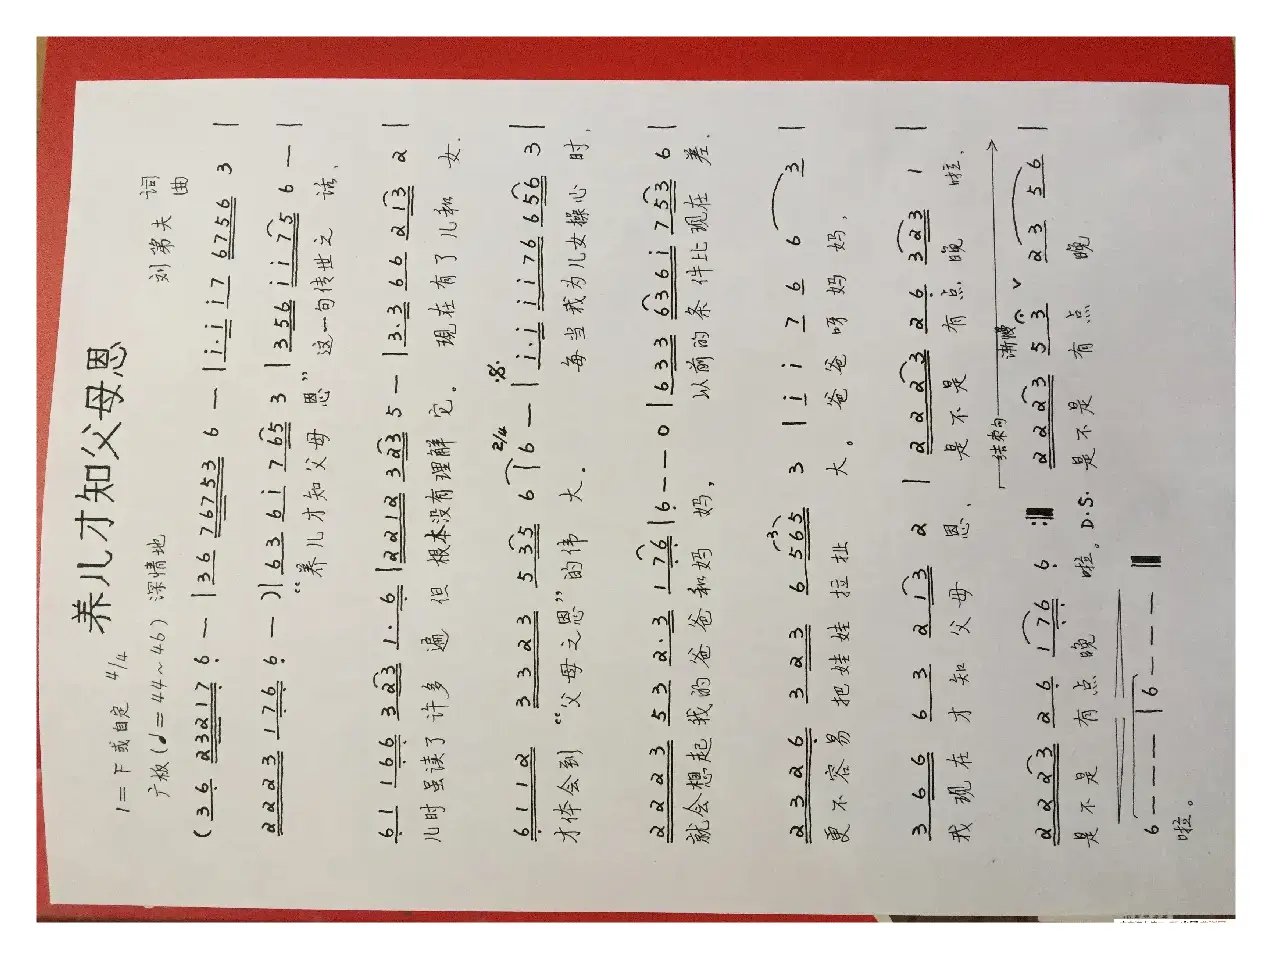 养儿才知父母恩
1=F或自定 4/4
刘第夫 词曲
广板(♩=44~46) 深情地
(36 232176 — |36 76753 6 — |i·i i7 6756 3 |
2223 176 6 — )|63 6i 765 3 |356 ii75 6 — |
“养儿才知父母恩” 这一句传世之话,
61 166 323 1·6 |2212 323 5 — |3·3 66 213 2 |
儿时虽读了许多遍 但根本没有理解它。 现在有了儿和女.
6112 3323 535 6 |2/4 6 — |i·i ii76 656 3 |
才体会到“父母之恩”的伟大。 每当我为儿女操心时,
2223 53 2·3 176 |6 - - 0 |633 636i 753 6 |
就会想起我的爸爸和妈妈, 以前的条件比现在差.
2326 323 6565 3 |i i 7 6 6 3 |
更不容易把娃娃拉扯大。爸爸呀妈妈,
366 63 213 2 |2223 26 323 1 |
我现在才知父母恩, 是不是有点晚啦,
结束句 渐慢
2223 26 176 6 :‖ 2223 53 ∨ 23 56 |
是不是有点晚啦。D.S. 是不是有点晚
6 - - - |6 - - - ‖
啦。